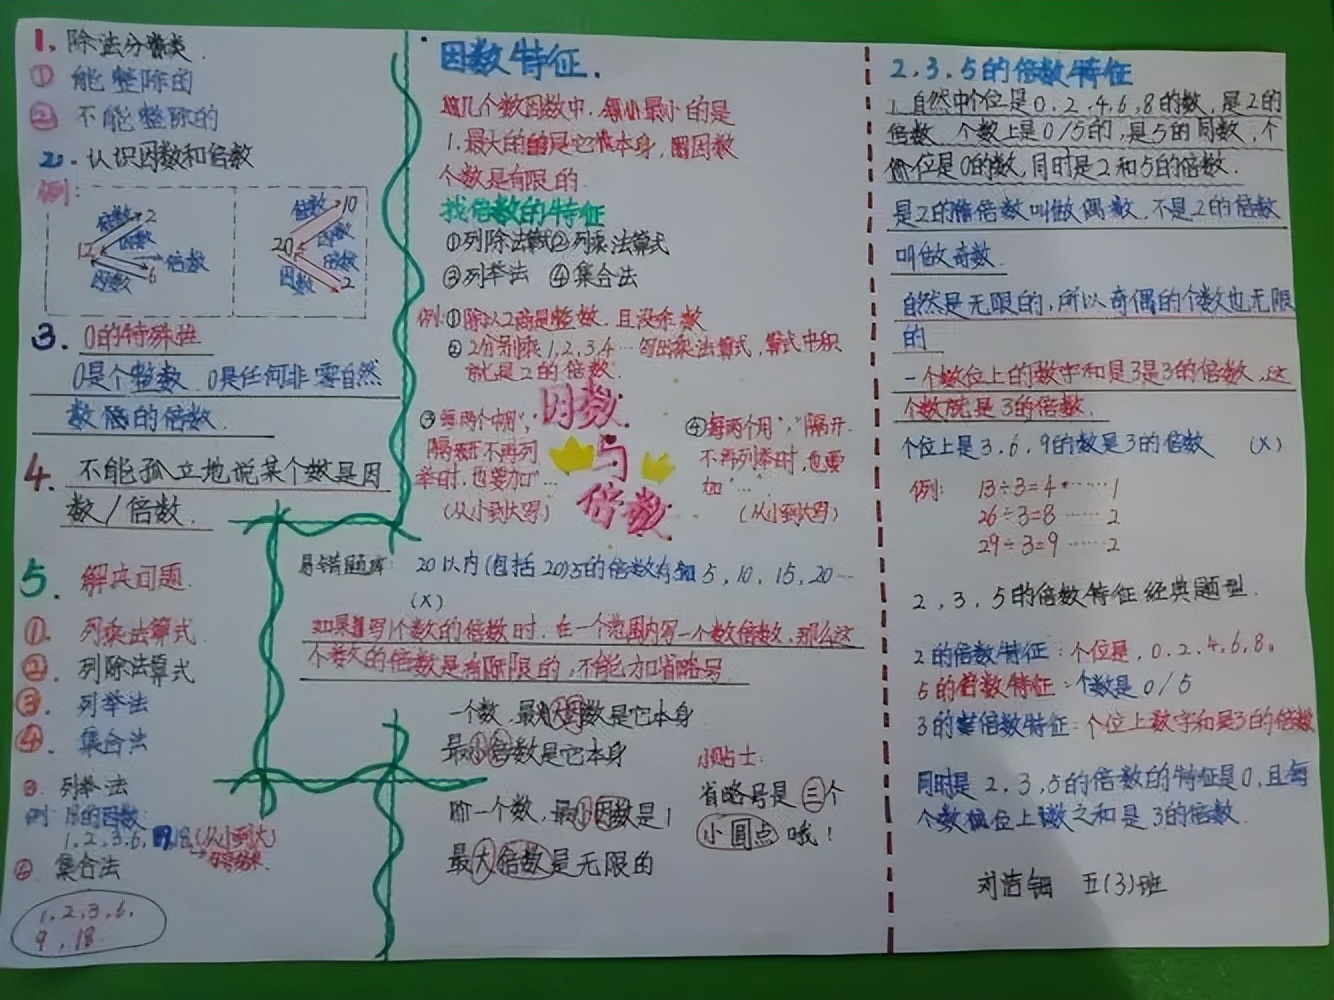 1. 除法分类
① 能整除的
② 不能整除的
2. 认识因数和倍数
例:
倍数 2
因数
12
倍数
因数 6
倍数 10
因数
20
因数 倍数
2
3. 0的特殊性
0是个整数 0是任何非零自然
数的倍数.
4. 不能孤立地说某个数是因
数/倍数.
5. 解决问题.
①. 列乘法算式.
②. 列除法算式
③. 列举法
④. 集合法
列举法
例: 18的因数:
1,2,3,6,9,18 (从小到大)
集合法
1,2,3,6,
9,18
因数特征.
几个数因数中,最小的是
1.最大的是它本身,因数
个数是有限的.
找倍数的特征
①列除法算式②列乘法算式
③列举法 ④集合法
例:①除以2商是整数.且没余数
②2分别乘1,2,3,4…写出乘法算式,算式中积
就是2的倍数.
③每两个中用","
隔开不再列
举时,也要加"…
(从小到大写)
因数
与
倍数
④每两个用","隔开.
不再列举时,也要
加"…"
(从小到大写)
易错题库: 20以内(包括20)5的倍数有 5,10,15,20…
(X)
如果写1个数的倍数时.在一个范围内写一个数倍数,那么这
个数的倍数是有限的,不能加省略号
一个数,最大因数是它本身
最小倍数是它本身
一个数,最小因数是1
最大倍数是无限的
小贴士:
省略号是三个
小圆点 哦!
2.3.5的倍数特征
1.自然中个位是0,2,4,6,8的数,是2的
倍数 个数上是0/5的,是5的同数,个
位是0的数,同时是2和5的倍数.
是2的倍数叫做偶数,不是2的倍数
叫做奇数.
自然是无限的,所以奇偶的个数也无限
的
一个数位上的数字和是3是3的倍数,这
个数就是3的倍数.
个位上是3,6,9的数是3的倍数 (X)
例: 13÷3=4……1
26÷3=8……2
29÷3=9……2
2,3,5的倍数特征经典题型.
2的倍数特征:个位是,0,2,4,6,8。
5的倍数特征:个数是0/5
3的倍数特征:个位上数字和是3的倍数
同时是2,3,5的倍数的特征是0,且每
个数位上数之和是3的倍数.
五(3)班